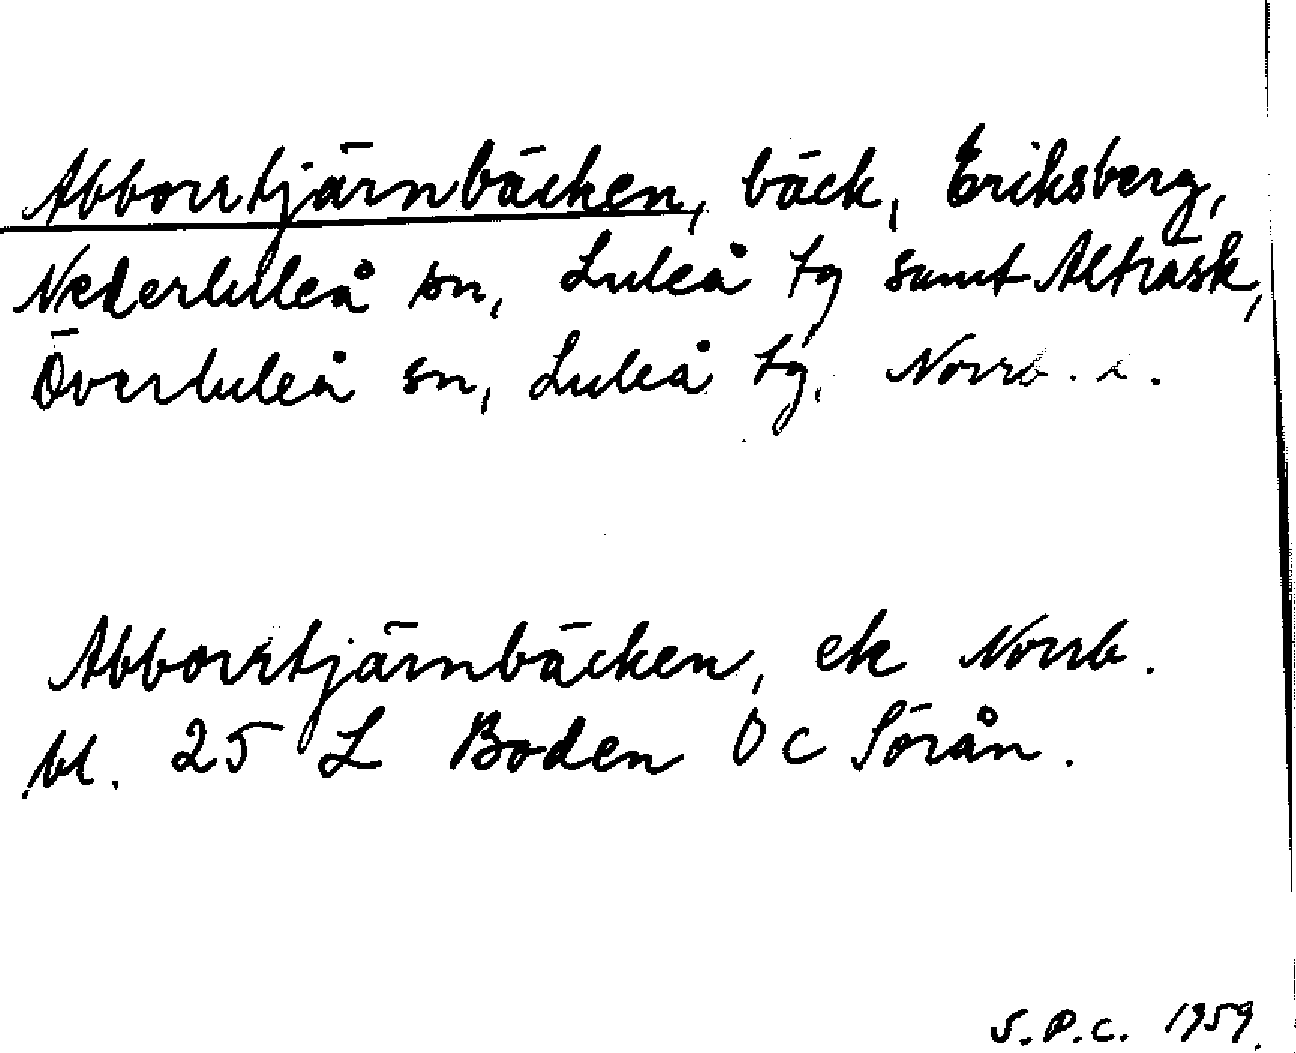 Abborrtjärnbäcken, bäck, Eriksberg,
Nederluleå sn, Luleå tg samt Alträsk,
Överluleå sn, Luleå tg. Norrb. l.
Abborrtjärnbäcken, ek Norrb.
bl. 25 L Boden ÖC Sörån.
S.P.C. 1959.